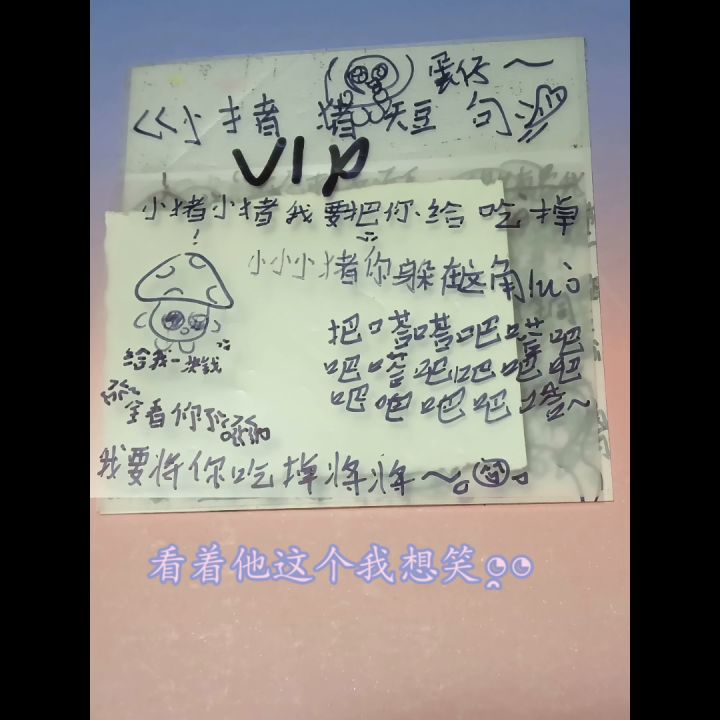 蛋仔～
<<小猪 猪天豆 句
VIP
小猪小猪我要把你给吃掉
小小小猪你躲在这角luò
把嗒嗒吧嗒吧
吧嗒吧吧吧吧
吧吧吧吧嗒～
给我一块钱
全看你
我要将你吃掉将将～。
看着他这个我想笑